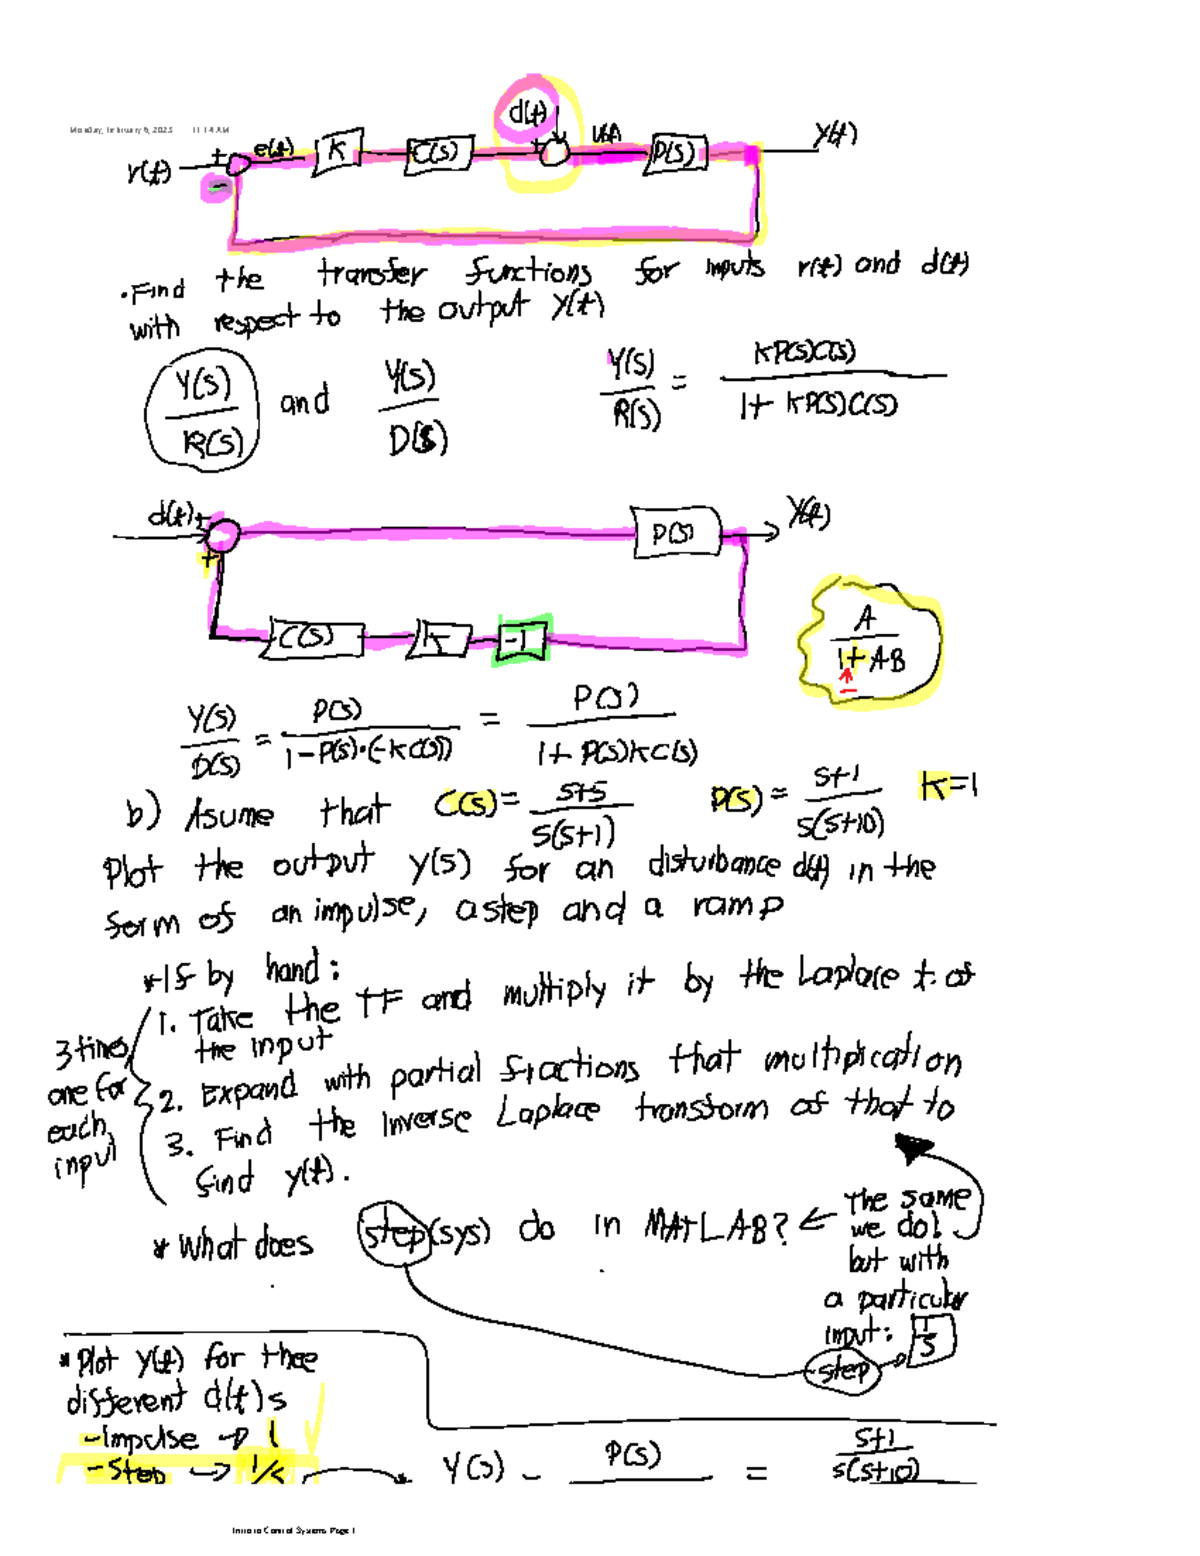 Monday, February 6, 2023 11:14 AM
d(t)
r(t) + - e(t) K C(s) + u(t) P(s) y(t)
•Find the transfer functions for inputs r(t) and d(t)
with respect to the output y(t)
Y(s)/R(s) and Y(s)/D(s) Y(s)/R(s) = KP(s)C(s)/1+ KP(s)C(s)
d(t) + + P(s) y(t)
C(s) K -1
A/1+AB
-
Y(s)/D(s) = P(s)/1-P(s)·(-KC(s)) = P(s)/1+ P(s)KC(s)
b) Asume that C(s)= s+5/s(s+1) P(s)= s+1/s(s+10) K=1
Plot the output y(s) for an disturbance d(t) in the
form of an impulse, a step and a ramp
*If by hand:
1. Take the TF and multiply it by the Laplace t. of
the input
2. Expand with partial fractions that multiplication
3. Find the Inverse Laplace transform of that to
find y(t).
3 times,
one for
each
input
* What does step(sys) do in MATLAB? ← The same
we do!
but with
a particular
input: 1/s
step
* Plot y(t) for thee
different d(t)s
-Impulse → 1
-Step → 1/s
Y(s) = P(s) = s+1/s(s+10)
Intro to Control Systems Page 1